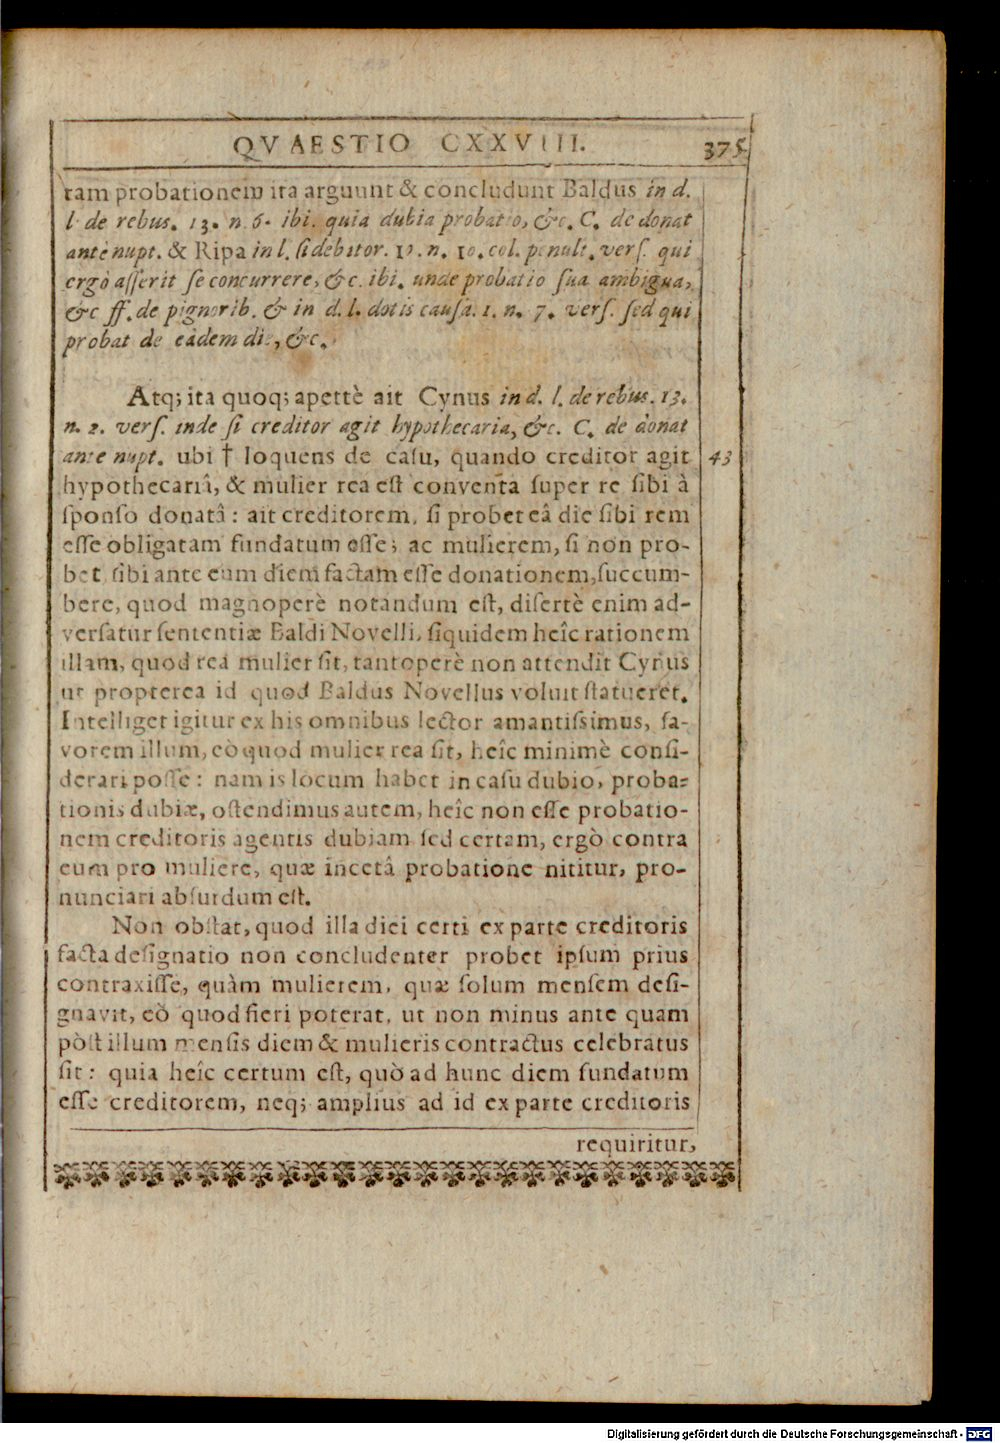 QVAESTIO CXXVIII. 375
tam probationem ita arguunt & concludunt Baldus in d.
l. de rebus. 13. n. 6. ibi. quia dubia probatio, &c. C. de donat
antè nupt. & Ripa in l. si debitor. n. 10. col. penult. vers. qui
ergò asserit se concurrere, &c. ibi. unde probatio sua ambigua,
&c ff. de pignorib. & in d. l. dotis causa. 1. n. 7. vers. sed qui
probat de eâdem die, &c.
Atq; ita quoq; apettè ait Cynus in d. l. de rebus. 13.
n. 2. vers. inde si creditor agit hypothecaria, &c. C. de donat
ante nupt. ubi † loquens de casu, quando creditor agit 43
hypothecariâ, & mulier rea est conventa super re sibi à
sponso donatâ: ait creditorem, si probet eâ die sibi rem
esse obligatam fundatum esse; ac mulierem, si non pro-
bet sibi ante eum diem factam esse donationem, succum-
bere, quod magnoperè notandum est, disertè enim ad-
versatur sententiæ Baldi Novelli, siquidem heîc rationem
illam, quod rea mulier sit, tantoperè non attendit Cynus
ut propterea id quod Baldus Novellus voluit statueret.
Intelliget igitur ex his omnibus lector amantissimus, fa-
vorem illum, eò quod mulier rea sit, heîc minimè consi-
derari posse: nam is locum habet in casu dubio, proba-
tionis dubiæ, ostendimus autem, heîc non esse probatio-
nem creditoris agentis dubiam sed certam, ergò contra
eum pro muliere, quæ incetâ probatione nititur, pro-
nunciari absurdum est.
Non obstat, quod illa diei certi ex parte creditoris
facta designatio non concludenter probet ipsum prius
contraxisse, quàm mulierem, quæ solum mensem desi-
gnavit, eò quod fieri poterat, ut non minus ante quam
pòst illum mensis diem & mulieris contractus celebratus
sit: quia heîc certum est, quò ad hunc diem fundatum
esse creditorem, neq; amplius ad id ex parte creditoris
requiritur,
Digitalisierung gefördert durch die Deutsche Forschungsgemeinschaft - DFG